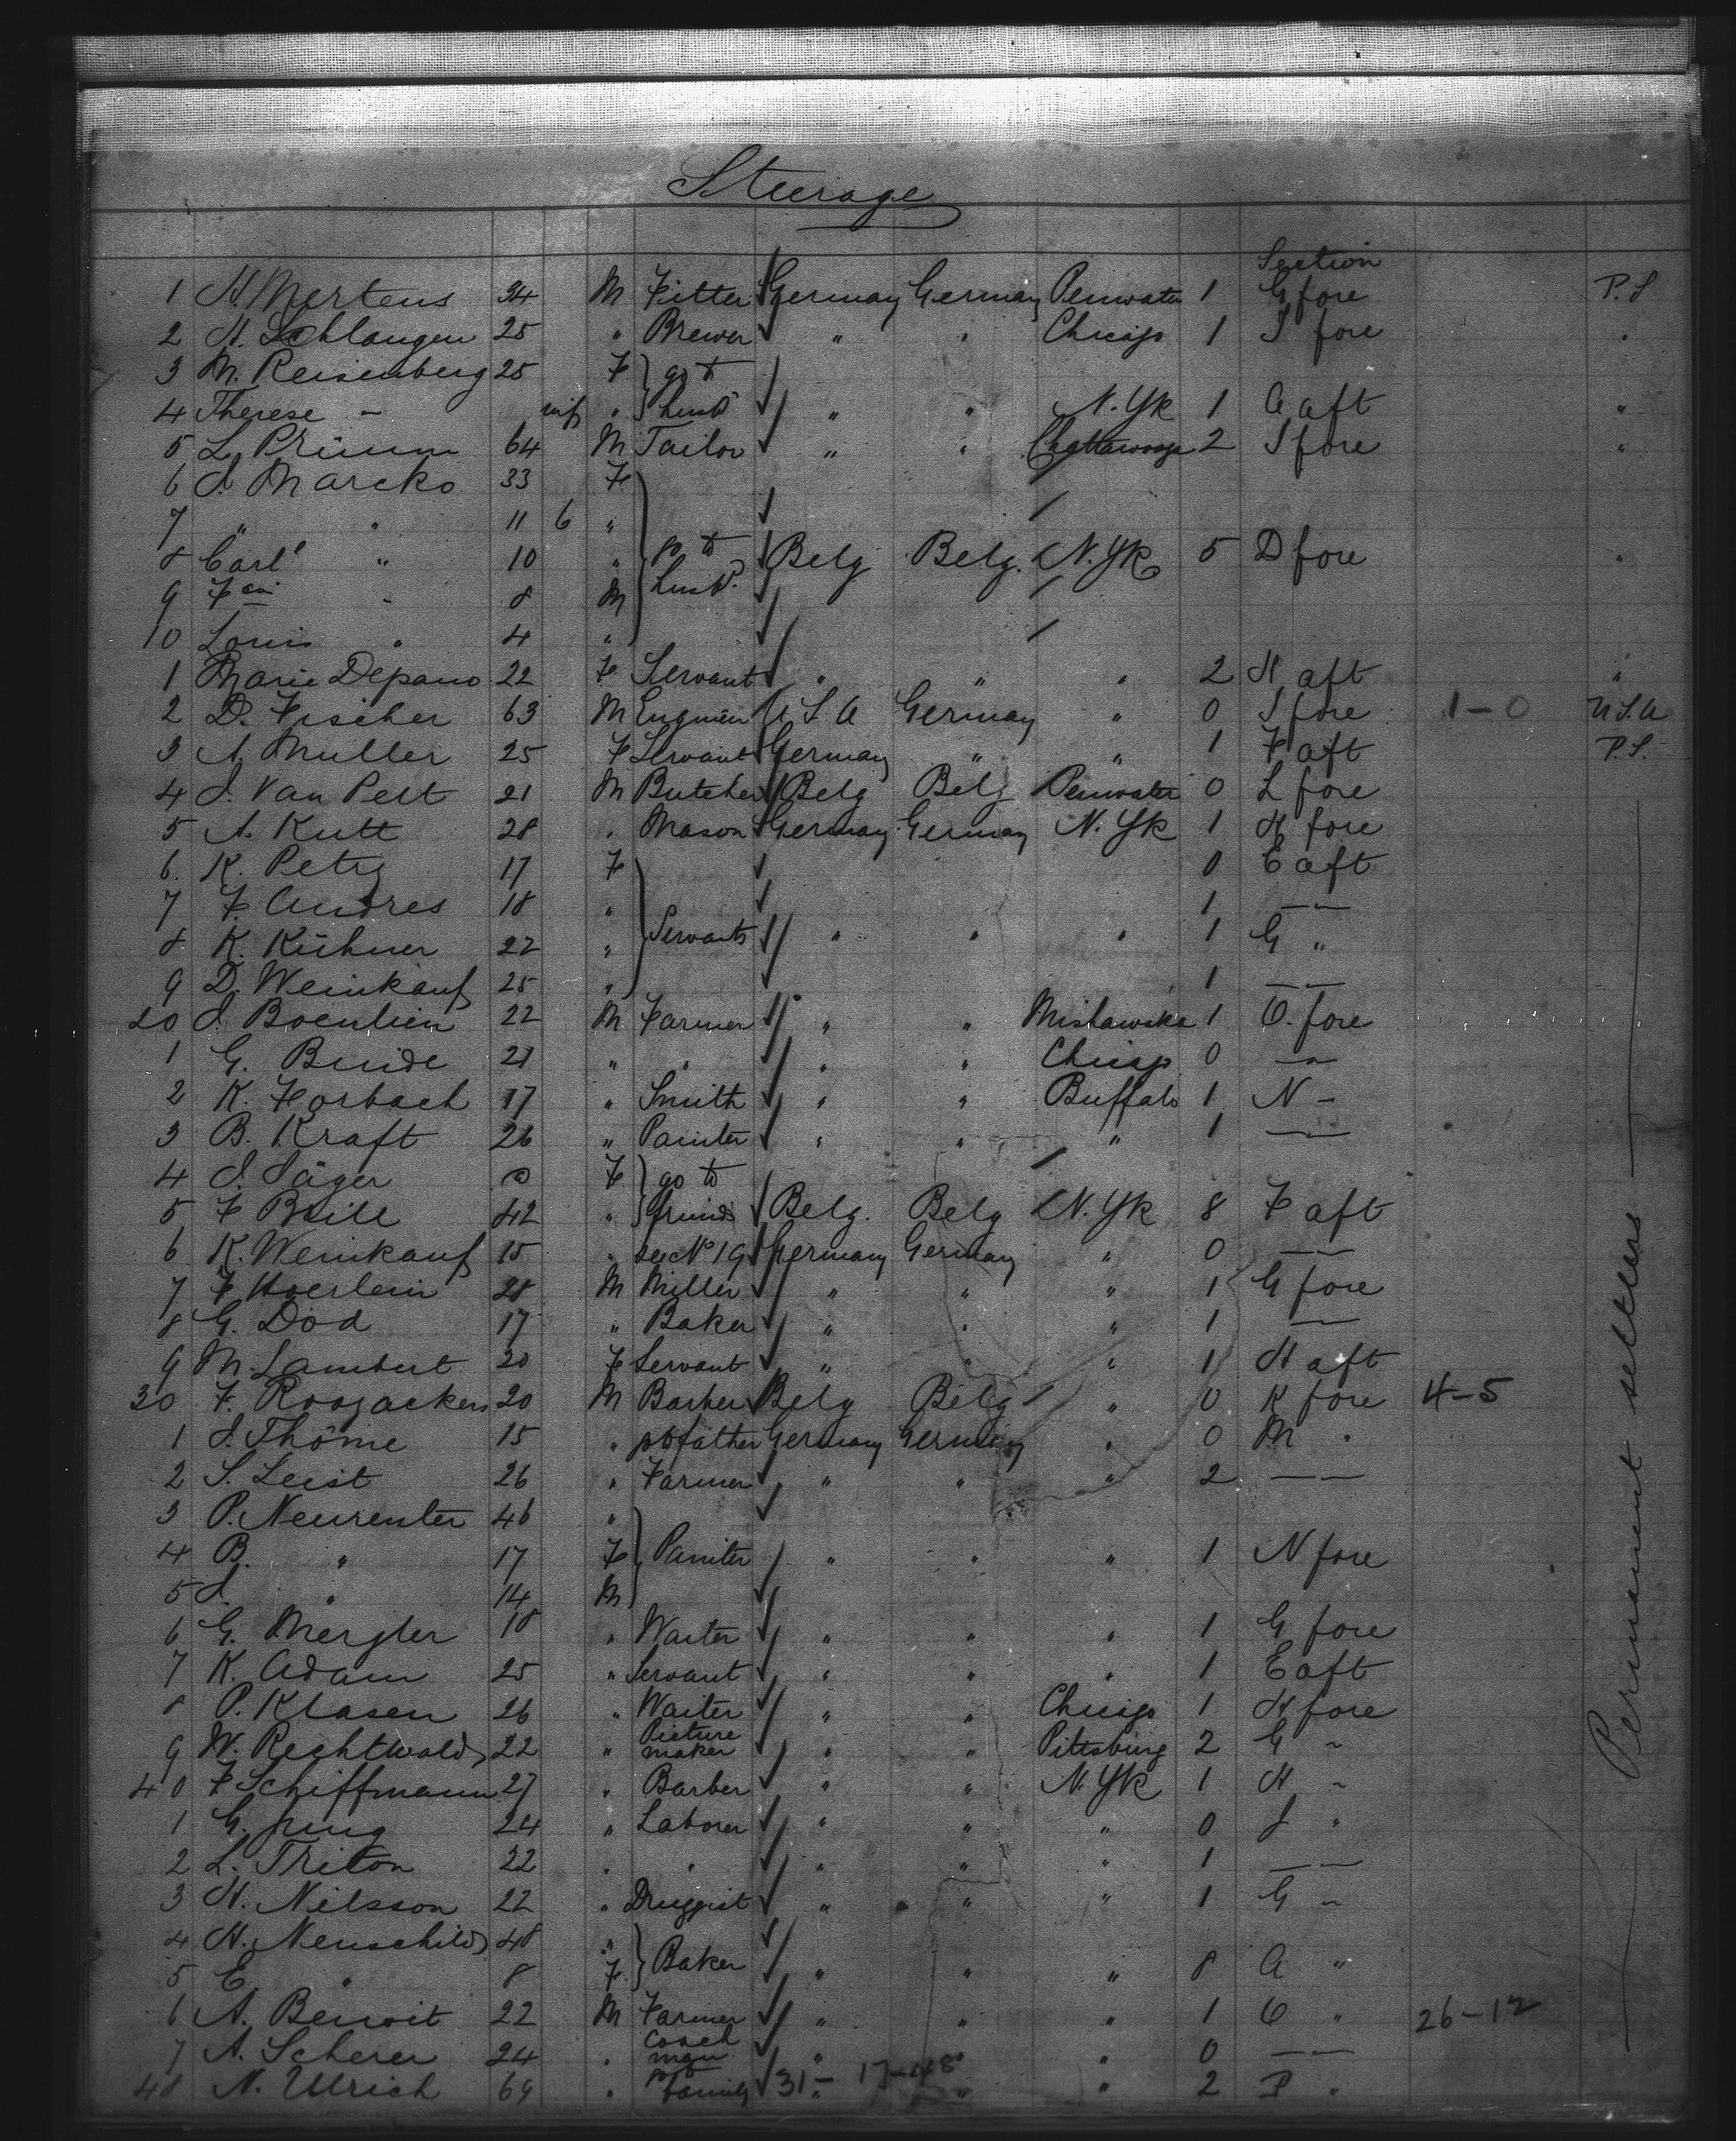 Steerage
Section
1 H. Mertens 34 M Fitter Germany Germany Penwater 1 G fore P.S
2 H. Schlangen 25 " Brewer " " Chicago 1 I fore "
3 M. Reisenberg 25 F go to
4 Therese - inf " husb " " N. Yk 1 A aft "
5 L. Prümm 64 M Tailor " " Chattanooga 2 I fore "
6 J. Marcko 33 F
7 " " 11 6 "
8 Carl " 10 " go to husb. Belg Belg. N. Yk 5 D fore "
9 " 8 M
10 Louis " 4 "
1 Marie Depauw 22 F Servant " " " 2 H aft "
2 D. Fischer 63 M U S A Germany " 0 I fore 1-0 U.S.A
3 A. Muller 25 F Servant Germany " " 1 F aft P.S.
4 J. Van Pelt 21 M Butcher Belg Belg Penwater 0 L fore
5 A. Kutt 28 " Mason Germany Germany N. Yk 1 H fore
6. K. Petry 17 F 0 E aft
7 F. Andres 18 " 1 — " —
8 K. Kühner 22 " Servants " " " 1 G "
9 D. Weinkauf 25 " 1 — " —
20 J. Boenlien 22 M Farmer " " Mishawaka 1 O. fore
1 G. Bride 21 " " " " Chicago 0 — " —
2 K. Forbach 17 " Smith " " Buffalo 1 N -
3 B. Kraft 26 " Painter " " " 1 — " —
4 J. Jäger F go to
5 F Brill 42 " friends Belg. Belg N. Yk 8 F aft
6 K. Weinkauf 15 " see No 19 Germany Germany " 0 — " —
7 F Hoerlein 28 M Miller " " " 1 G fore
8 G. Död 17 " Baker " " " 1 — " —
9 M. Lambert 20 F Servant " " " 1 H aft
30 F. Roozackers 20 M Barber Belg Belg " 0 K fore 4-5
1 J. Thöme 15 " father Germany Germany " 0 M "
2 S. Leist 26 " Farmer " " " 2 — " —
3 P. Neureuter 46 "
4 B. " 17 F Painter " " " 1 N fore
5 J. " 14 M
6 G. Mergler 18 " Waiter " " " 1 G fore
7 K. Adam 25 " Servant " " " 1 E aft
8 P. Klasen 26 " Waiter " " Chicago 1 H fore
9 W. Rechtwald 22 " Picture maker " " Pittsburg 2 G "
40 F Schiffmann 27 " Barber " " N. Yk 1 H "
1 G. Jung 24 " Laborer " " " 0 J "
2 L. Triton 22 " " " " " 1 — " —
3 H. Nilsson 22 " Druggist " " " 1 G "
4 H. Neuschild 48 "
5 E. " 8 F Baker " " " 8 A "
6 A. Benoit 22 M Farmer " " " 1 O " 26-12
7 A. Scherer 24 " Coach man " " 0 — " —
48 N. Ulrich 69 " family 31- 17-48 " " 2 P "
Permanent settlers